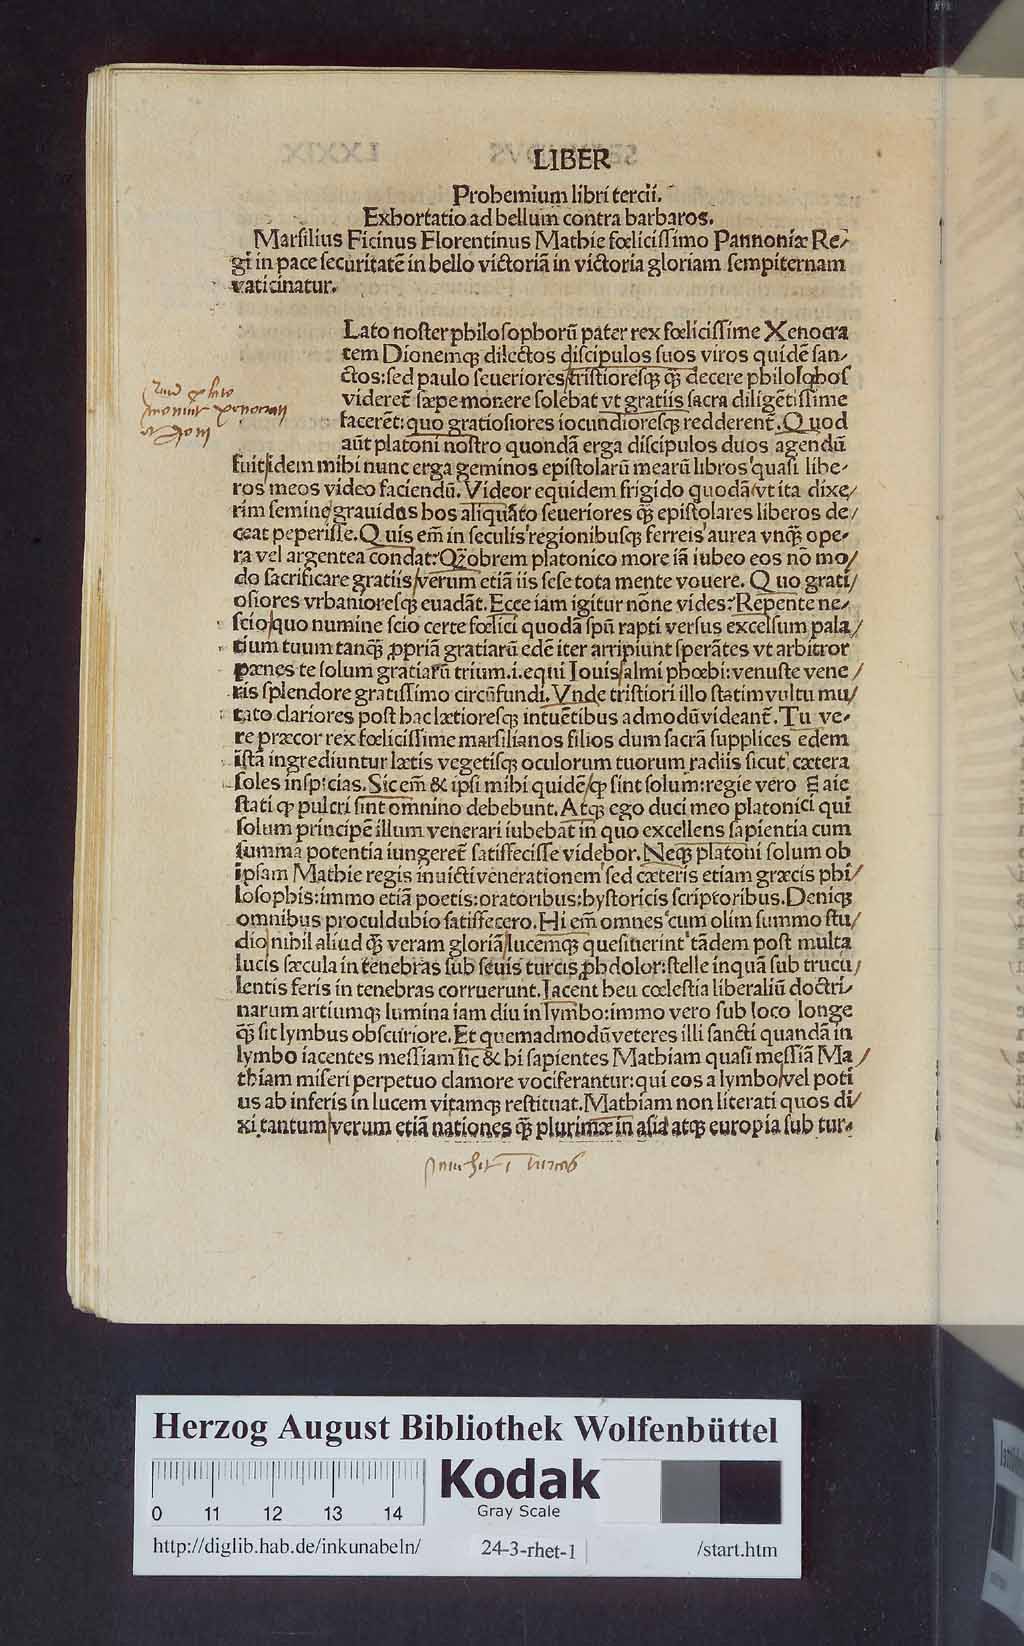 LIBER
Prohemium libri tercii.
Exhortatio ad bellum contra barbaros.
Marsilius Ficinus Florentinus Mathie fœlicissimo Pannoniæ Re/
gi in pace securitatē in bello victoriā in victoria gloriam sempiternam
vaticinatur.
Lato noster philosophorū pater rex fœlicissime Xenocra
tem Dionemqꝫ dilectos discipulos suos viros quidē san/
ctos: sed paulo seueriores/tristioresqꝫ qꝫ̄ decere philosophos
videret̄ sæpe monere solebat vt gratiis sacra diligētissime
facerēt: quo gratiosiores iocundioresqꝫ redderent̄. Quod
aūt platoni nostro quondā erga discipulos duos agendū
fuit/idem mihi nunc erga geminos epistolarū mearū libros quasi libe/
ros meos video faciendū. Videor equidem frigido quodā/vt ita dixe/
rim semine/grauidus hos aliquāto seueriores qꝫ̄ epistolares liberos de/
ceat peperisse. Quis em̄ in seculis regionibusqꝫ ferreis aurea vnqꝫ̄ ope/
ra vel argentea condat: Qꝫobrem platonico more iā iubeo eos nō mo/
do sacrificare gratiis/verum etiā iis sese tota mente vouere. Quo grati/
osiores vrbanioresqꝫ euadāt. Ecce iam igitur nōne vides: Repente ne/
scio/quo numine scio certe fœlici quodā spū rapti versus excelsum pala/
tium tuum tanqꝫ̄ ꝓpriā gratiarū edē iter arripiunt sperātes vt arbitror
pænes te solum gratiarū trium .i. equi Iouis/almi phœbi: venuste vene/
ris splendore gratissimo circūfundi. Vnde tristiori illo statim vultu mu/
tato clariores post hac lætioresqꝫ intuētibus admodū videant̄. Tu ve/
re præcor rex fœlicissime marsilianos filios dum sacrā supplices edem
istā ingrediuntur lætis vegetisqꝫ oculorum tuorum radiis sicut cætera
soles inspicias. Sic em̄ & ipsi mihi quidē/ꝙ sint solum: regie vero maie
stati ꝙ pulcri sint omnino debebunt. Atqꝫ ego duci meo platonici qui
solum principē illum venerari iubebat in quo excellens sapientia cum
summa potentia iungeret̄ satisfecisse videbor. Neqꝫ platoni solum ob
ipsam Mathie regis inuicti venerationem sed cæteris etiam græcis phi/
losophis: immo etiā poetis: oratoribus: hystoricis scriptoribus. Deniqꝫ
omnibus proculdubio satisfecero. Hi em̄ omnes cum olim summo stu/
dio/nihil aliud qꝫ̄ veram gloriā/lucemqꝫ quesiuerint tādem post multa
lucis sæcula in tenebras sub seuis turcis ꝓh dolor: stelle inquā sub trucu/
lentis feris in tenebras corruerunt. Iacent heu cœlestia liberaliū doctri/
narum artiumqꝫ lumina iam diu in lymbo: immo vero sub loco longe
qꝫ̄ sit lymbus obscuriore. Et quemadmodū veteres illi sancti quandā in
lymbo iacentes messiam sic & hi sapientes Mathiam quasi messiā Ma/
thiam miseri perpetuo clamore vociferantur: qui eos a lymbo/vel poti
us ab inferis in lucem vitamqꝫ restituat. Mathiam non literati quos di/
xi tantum/verum etiā nationes qꝫ̄ plurimæ in asia atqꝫ europia sub tur/
Herzog August Bibliothek Wolfenbüttel
0 11 12 13 14
Kodak
Gray Scale
http://diglib.hab.de/inkunabeln/ 24-3-rhet-1 /start.htm